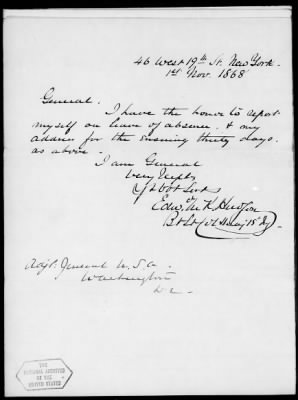 46 West 19th St. New York.
1st Nov. 1868
General.
I have the honor to report
myself on leave of absence. & my
address for the ensuing thirty days.
as above.
I am General
Very Respty
Yr Obt Servt
Edwd McK Hudson
Bt Lt Col
Adjt. General U.S.A.
Washington
D.C.
THE
NATIONAL ARCHIVES
OF THE
UNITED STATES